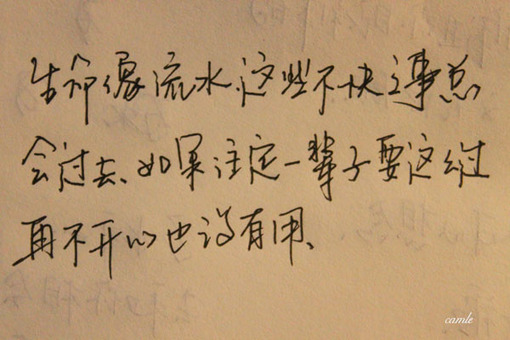 生命像流水,这些不快之事总
会过去、如果注定一辈子要这么过
再不开心也没有用、
camle